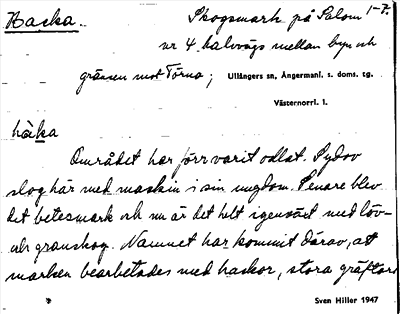 Hacka. Skogsmark på Salom 1-7.
nr 4 halvvägs mellan byn och
gränsen mot Törna; Ullångers sn, Ångermanl. s. doms. tg.
Västernorrl. l.
hàka
Området har förr varit odlat. Sydov
slog här med maskin i sin ungdom. Senare blev
det betesmark och nu är det helt igenväxt med löv-
och granskog. Namnet har kommit därav, att
marken bearbetades med hackor, stora gräftor
Sven Hiller 1947